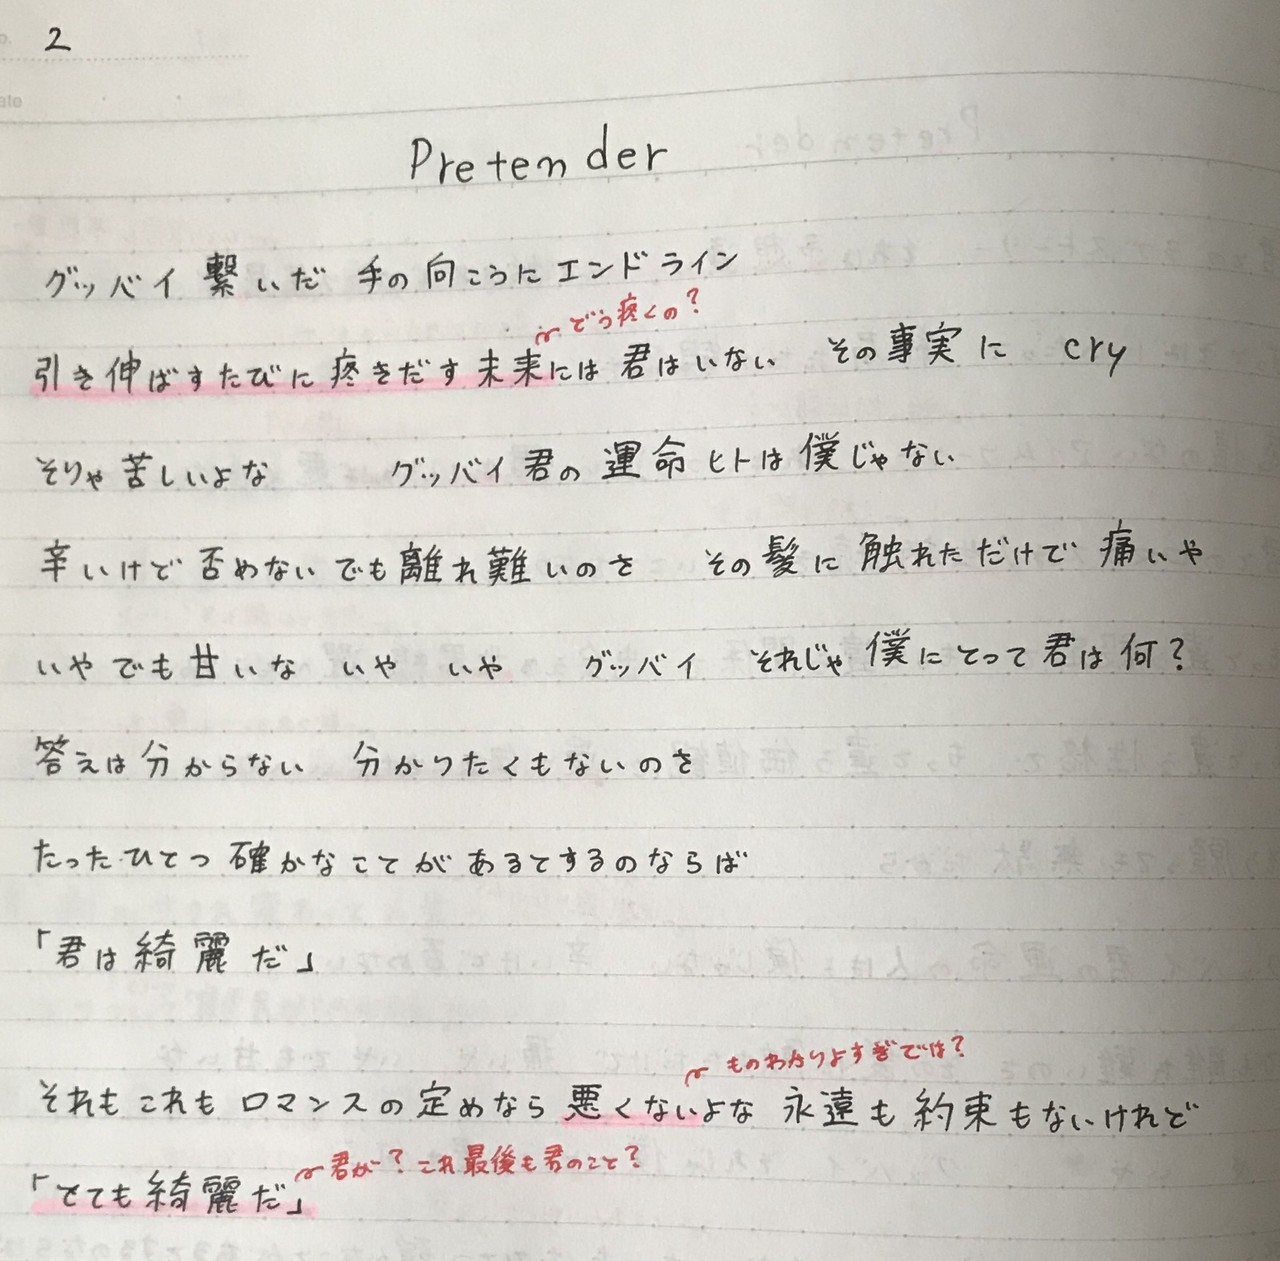 2
Pretender
グッバイ 繋いだ 手の向こうにエンドライン
どう疼くの?
引き伸ばすたびに 疼きだす 未来には 君はいない その事実に cry
そりゃ苦しいよな グッバイ 君の 運命ヒトは僕じゃない
辛いけど 否めない でも離れ難いのさ その髪に 触れただけで 痛いや
いや でも 甘いな いや いや グッバイ それじゃ僕にとって君は何?
答えは分からない 分かりたくもないのさ
たったひとつ確かなことがあるとするのならば
「君は綺麗だ」
ものわかりよすぎでは?
それもこれも ロマンスの定めなら 悪くないよな 永遠も約束もないけれど
君が? これ最後も君のこと?
「とても綺麗だ」